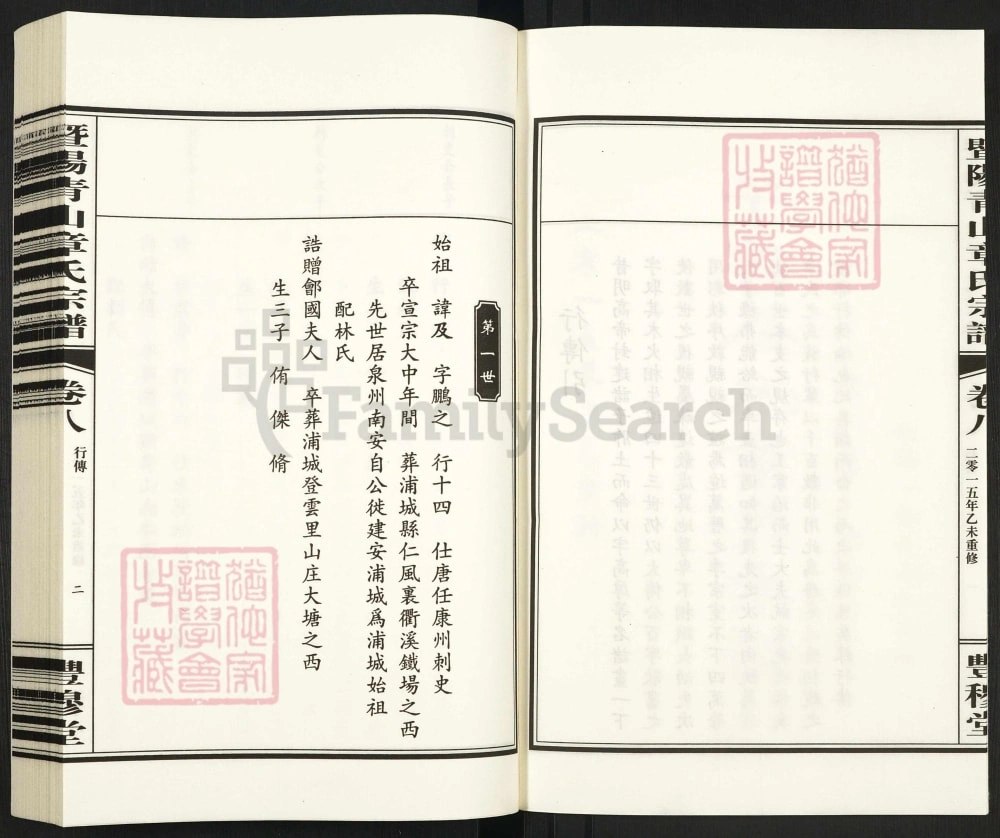 暨陽青山章氏宗譜
卷八
二零一五年乙未重修
豐穆堂
第一世
始祖 諱及 字鵬之 行十四 仕唐任康州刺史
卒宣宗大中年間 葬浦城縣仁風裏衢溪鐵場之西
先世居泉州南安自公徙建安浦城爲浦城始祖
配林氏
誥贈鄶國夫人 卒葬浦城登雲里山庄大塘之西
生三子 侑 傑 脩
暨陽青山章氏宗譜
卷八
行傳
二
豐穆堂
譜學會
收藏
譜學會
收藏
FamilySearch